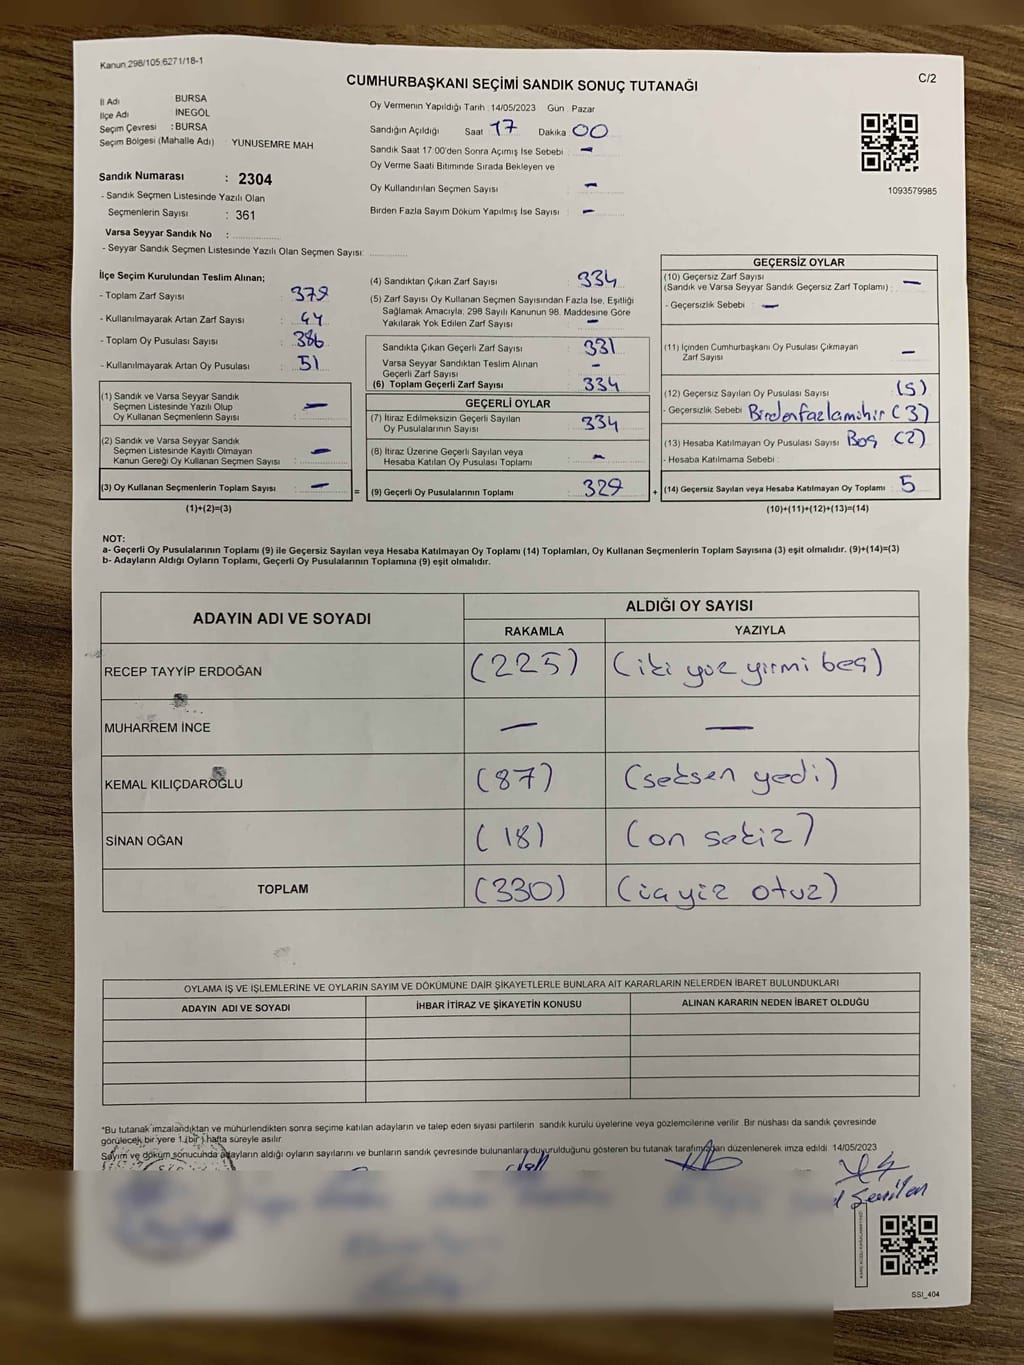 Kanun 298/105;6271/18-1
CUMHURBAŞKANI SEÇİMİ SANDIK SONUÇ TUTANAĞI
C/2
İl Adı BURSA
İlçe Adı İNEGÖL
Seçim Çevresi : BURSA
Seçim Bölgesi (Mahalle Adı) : YUNUSEMRE MAH
Sandık Numarası : 2304
- Sandık Seçmen Listesinde Yazılı Olan
Seçmenlerin Sayısı : 361
Varsa Seyyar Sandık No :
- Seyyar Sandık Seçmen Listesinde Yazılı Olan Seçmen Sayısı:
Oy Vermenin Yapıldığı Tarih : 14/05/2023 Gün : Pazar
Sandığın Açıldığı Saat 17 Dakika 00
Sandık Saat 17:00'den Sonra Açımış İse Sebebi : —
Oy Verme Saati Bitiminde Sırada Bekleyen ve
Oy Kullandırılan Seçmen Sayısı : —
Birden Fazla Sayım Döküm Yapılmış İse Sayısı : —
1093579985
İlçe Seçim Kurulundan Teslim Alınan;
- Toplam Zarf Sayısı : 378
- Kullanılmayarak Artan Zarf Sayısı : 44
- Toplam Oy Pusulası Sayısı : 386
- Kullanılmayarak Artan Oy Pusulası : 51
(1) Sandık ve Varsa Seyyar Sandık
Seçmen Listesinde Yazılı Olup
Oy Kullanan Seçmenlerin Sayısı : —
(2) Sandık ve Varsa Seyyar Sandık
Seçmen Listesinde Kayıtlı Olmayan
Kanun Gereği Oy Kullanan Seçmen Sayısı : —
(3) Oy Kullanan Seçmenlerin Toplam Sayısı : —
(1)+(2)=(3)
(4) Sandıktan Çıkan Zarf Sayısı : 334
(5) Zarf Sayısı Oy Kullanan Seçmen Sayısından Fazla İse, Eşitliği
Sağlamak Amacıyla; 298 Sayılı Kanunun 98. Maddesine Göre
Yakılarak Yok Edilen Zarf Sayısı : —
Sandıkta Çıkan Geçerli Zarf Sayısı : 331
Varsa Seyyar Sandıktan Teslim Alınan
Geçerli Zarf Sayısı : —
(6) Toplam Geçerli Zarf Sayısı : 334
GEÇERLİ OYLAR
(7) İtiraz Edilmeksizin Geçerli Sayılan
Oy Pusulalarının Sayısı : 334
(8) İtiraz Üzerine Geçerli Sayılan veya
Hesaba Katılan Oy Pusulası Toplamı : —
= (9) Geçerli Oy Pusulalarının Toplamı : 329 +
GEÇERSİZ OYLAR
(10) Geçersiz Zarf Sayısı
(Sandık ve Varsa Seyyar Sandık Geçersiz Zarf Toplamı) : —
- Geçersizlik Sebebi : —
(11) İçinden Cumhurbaşkanı Oy Pusulası Çıkmayan
Zarf Sayısı : —
(12) Geçersiz Sayılan Oy Pusulası Sayısı : (5)
- Geçersizlik Sebebi : Birden fazla mühür (3)
(13) Hesaba Katılmayan Oy Pusulası Sayısı : Boş (2)
- Hesaba Katılmama Sebebi :
(14) Geçersiz Sayılan veya Hesaba Katılmayan Oy Toplamı : 5
(10)+(11)+(12)+(13)=(14)
NOT:
a- Geçerli Oy Pusulalarının Toplamı (9) ile Geçersiz Sayılan veya Hesaba Katılmayan Oy Toplamı (14) Toplamları, Oy Kullanan Seçmenlerin Toplam Sayısına (3) eşit olmalıdır. (9)+(14)=(3)
b- Adayların Aldığı Oyların Toplamı, Geçerli Oy Pusulalarının Toplamına (9) eşit olmalıdır.
ADAYIN ADI VE SOYADI ALDIĞI OY SAYISI
RAKAMLA YAZIYLA
RECEP TAYYİP ERDOĞAN (225) (iki yüz yirmi beş)
MUHARREM İNCE — —
KEMAL KILIÇDAROĞLU (87) (seksen yedi)
SİNAN OĞAN (18) (on sekiz)
TOPLAM (330) (üçyüz otuz)
OYLAMA İŞ VE İŞLEMLERİNE VE OYLARIN SAYIM VE DÖKÜMÜNE DAİR ŞİKAYETLERLE BUNLARA AİT KARARLARIN NELERDEN İBARET BULUNDUKLARI
ADAYIN ADI VE SOYADI İHBAR İTİRAZ VE ŞİKAYETİN KONUSU ALINAN KARARIN NEDEN İBARET OLDUĞU
*Bu tutanak imzalandıktan ve mühürlendikten sonra seçime katılan adayların ve talep eden siyasi partilerin sandık kurulu üyelerine veya gözlemcilerine verilir. Bir nüshası da sandık çevresinde
görülecek bir yere 1 (bir) hafta süreyle asılır.
Sayım ve döküm sonucunda adayların aldığı oyların sayılarını ve bunların sandık çevresinde bulunanlara duyurulduğunu gösteren bu tutanak tarafımızdan düzenlenerek imza edildi 14/05/2023
SSI_404